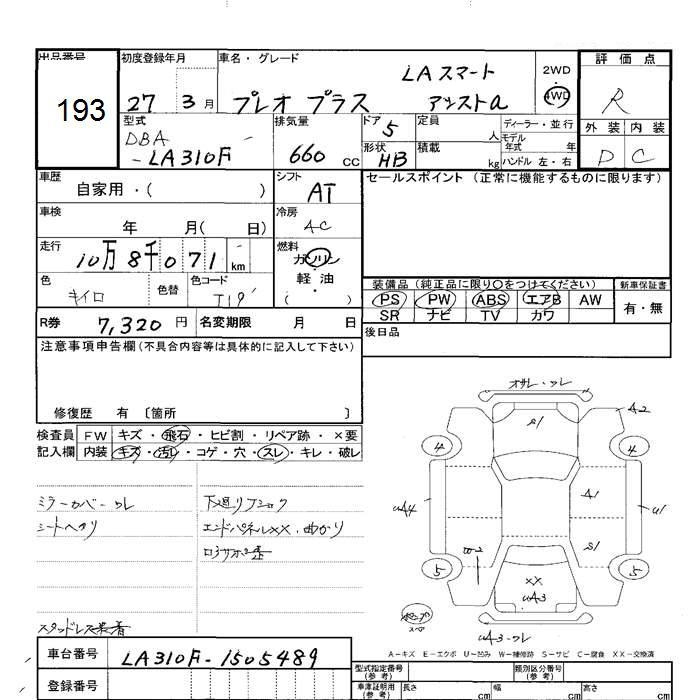 出品番号
193
初度登録年月
27 3月
車名・グレード
LAスマート
プレオ プラス アシスト
2WD
4WD
評価点
R
外装 内装
D C
型式
DBA
-LA310F
排気量
660 CC
ドア 5
形状 HB
定員 人
積載 kg
ディーラー・並行
モデル年式 年
ハンドル 左・右
車歴
自家用・( )
シフト
AT
セールスポイント (正常に機能するものに限ります)
車検
年 月( 日)
冷房
AC
走行
10万8千071 km
燃料
ガソリン
軽油
( )
色
キイロ
色替
色コード
装備品 (純正品に限り○をつけてください)
新車保証書
PS PW ABS エアB AW
SR ナビ TV カワ
有・無
R券 7,320 円
名変期限 月 日
後日品
注意事項申告欄(不具合内容等は具体的に記入して下さい)
修復歴 有 〔箇所 〕
検査員記入欄
FW キズ・飛石・ヒビ割・リペア跡・×要
内装 キズ・汚れ・コゲ・穴・スレ・キレ・破レ
ミラーカバーワレ
シートヘタリ
下廻りフショク
エンドパネルXX、曲がり
スタッドレス装着
オサレ・ワレ
S1
A2
4
4
uA4
A1
u1
S1
W2
5
5
XX
uA3
スペア
uA3-ワレ
A-キズ E-エクボ U-凹み W-補修跡 S-サビ C-腐食 XX-交換済
車台番号
LA310F-1505489
登録番号
型式指定番号(参考)
類別区分番号(参考)
車庫証明用(参考)
長さ cm
幅 cm
高さ cm